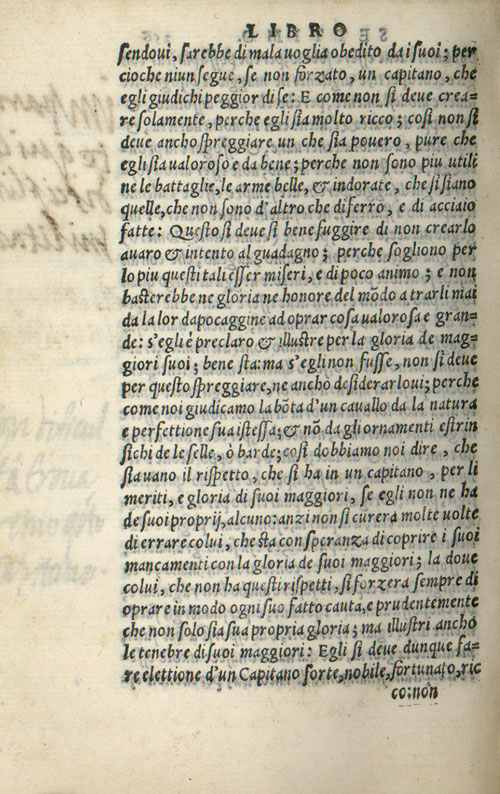 LIBRO
sendoui, sarebbe di mala uoglia obedito da i suoi; per
cioche niun segue, se non forzato, un capitano, che
egli giudichi peggior di se: E come non si deve crea-
re solamente, perche egli sia molto ricco; così non si
deue ancho spreggiare un che sia pouero, pure che
egli sia ualoroso e da bene; perche non sono piu utili
ne le battaglie, le arme belle, & indorate, che si siano
quelle, che non sono d'altro che di ferro, e di acciaio
fatte: Questo si deue si bene fuggire di non crearlo
auaro & intento al guadagno; perche sogliono per
lo piu questi tali esser miseri, e di poco animo; e non
basterebbe ne gloria ne honore del mōdo a trarli mai
da la lor dapocaggine ad oprar cosa ualorosa e gran-
de: s'egli è preclaro & illustre per la gloria de mag-
giori suoi; bene sta: ma s'egli non fusse, non si deue
per questo spreggiare, ne ancho desiderarloui; perche
come noi giudicamo la bōta d'un cauallo da la natura
e perfettione sua istessa; & nō da gli ornamenti estrin
sichi de le selle, ò barde; così dobbiamo noi dire, che
sia uano il rispetto, che si ha in un capitano, per li
meriti, e gloria di suoi maggiori, se egli non ne ha
de suoi proprij, alcuno: anzi non si curera molte uolte
di errare colui, che sta con speranza di coprire i suoi
mancamenti con la gloria de suoi maggiori; la doue
colui, che non ha questi rispetti, si forzera sempre di
oprare in modo ogni suo fatto cauta, e prudentemente
che non solo sia sua propria gloria; ma illustri ancho
le tenebre di suoi maggiori: Egli si deve dunque fa-
re elettione d'un Capitano forte, nobile, fortunato, ric
co: non